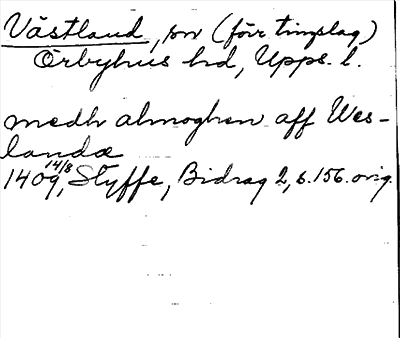 Västland, sn (förr tingslag)
Örbyhus hd, Upps. l.
medh almoghen aff Wes-
landæ
1409 14/8, Styffe, Bidrag 2, s. 156. orig.